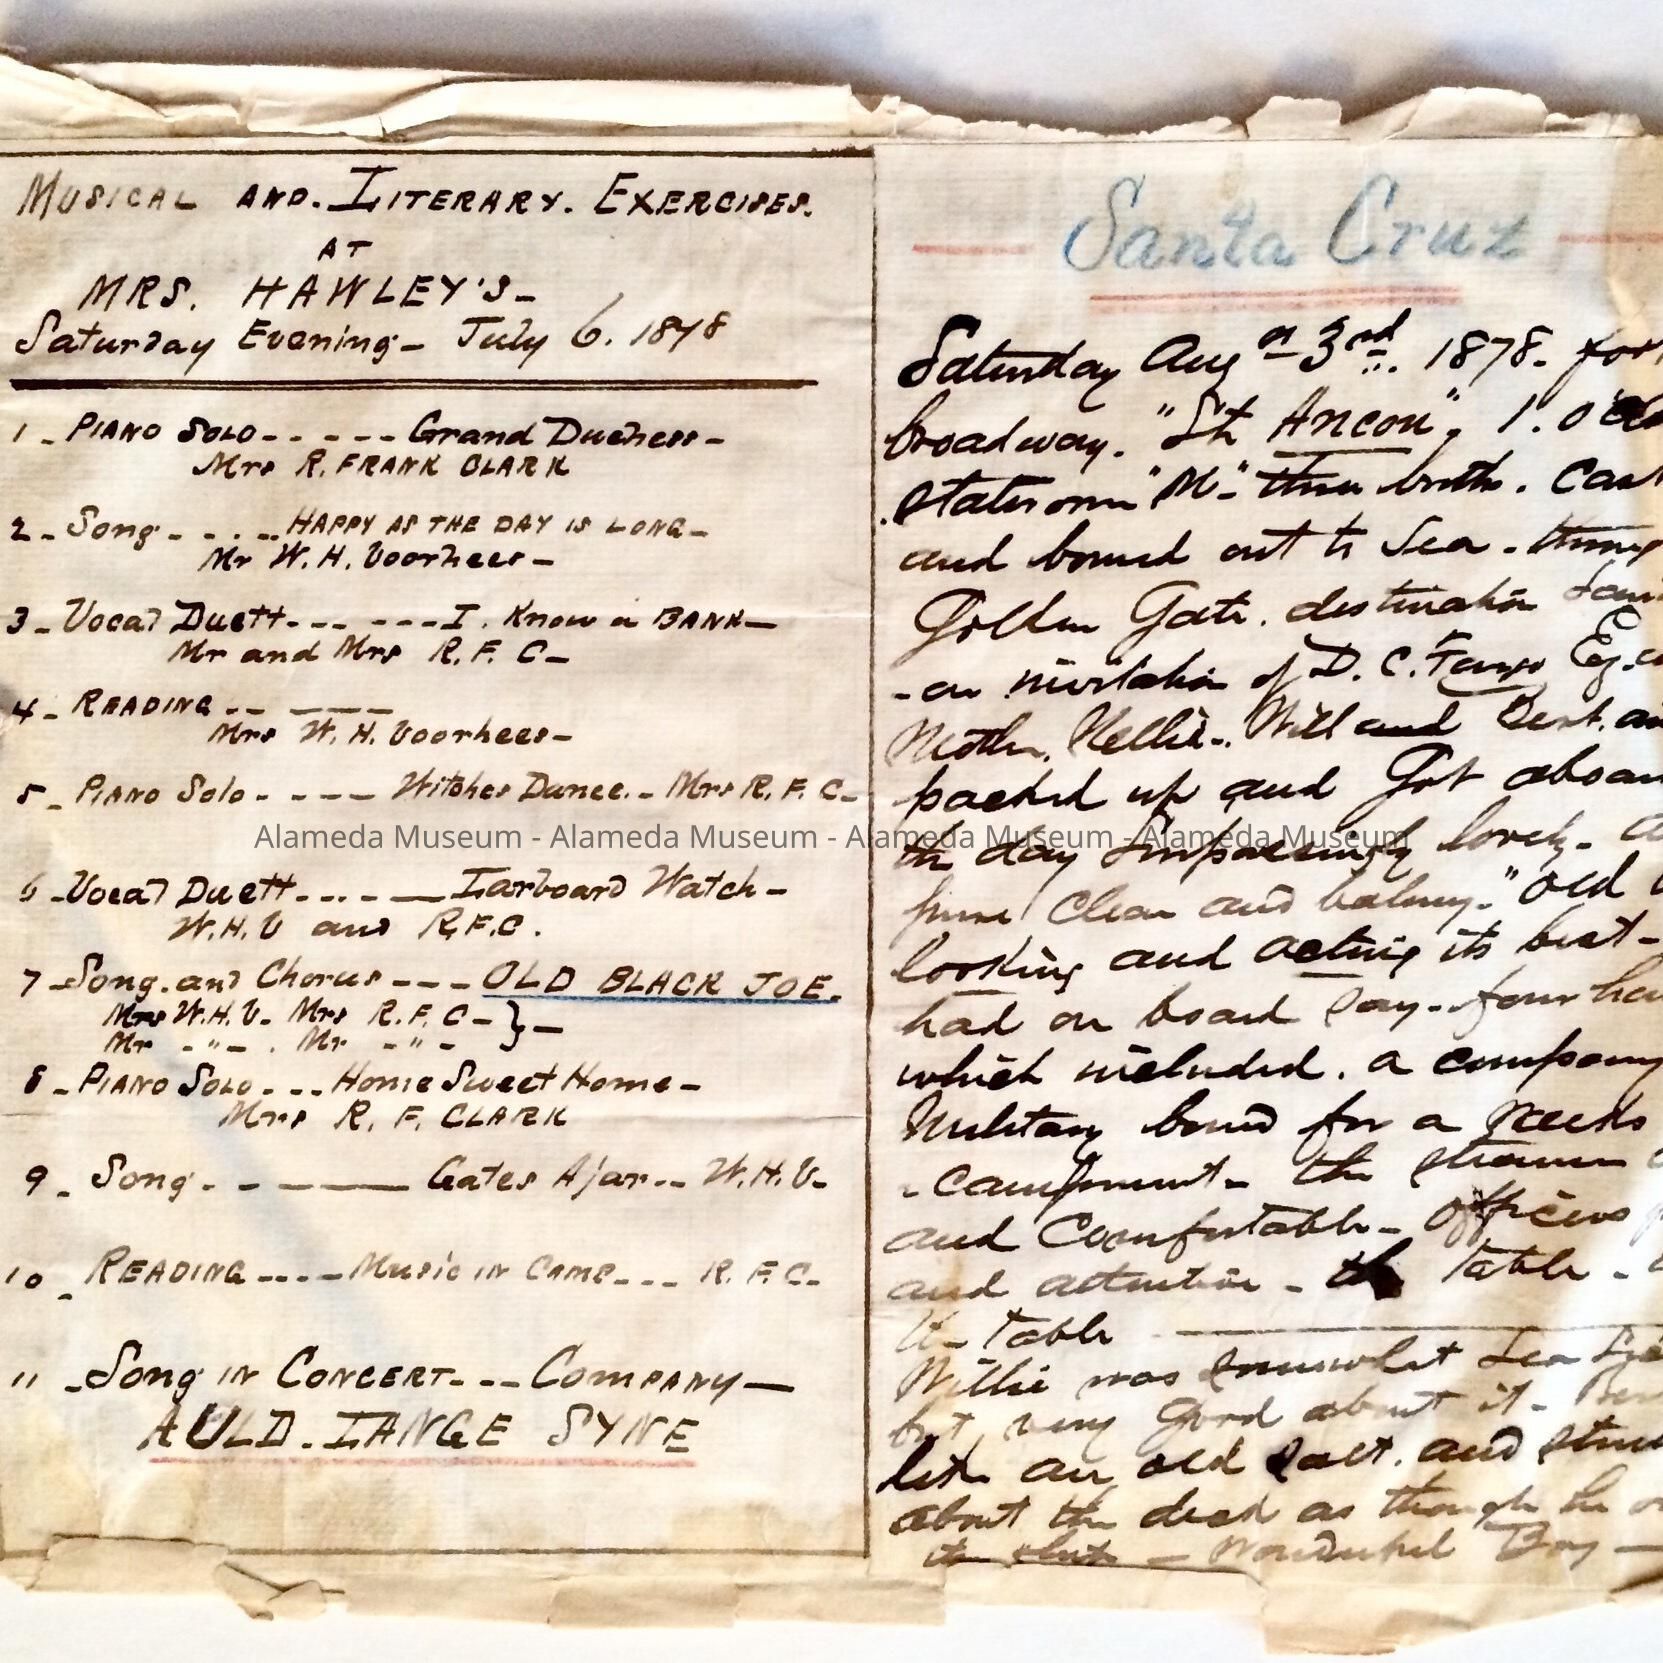 MUSICAL AND. LITERARY. EXERCISES.
AT
MRS. HAWLEY'S-
Saturday Evening- July 6. 1878
1 - PIANO SOLO - - - - - - Grand Duchess -
Mrs R. FRANK CLARK
2 - Song - - . . . - HAPPY AS THE DAY IS LONG -
Mr W. H. Voorhees -
3 - Vocal Duett - - - - - - - I Know a BANK -
Mr and Mrs R. F. C -
4 - READING - - - - -
Mrs W. H. Voorhees -
5 - PIANO Solo - - - - Witches Dance. - Mrs R. F. C -
6 - Vocal Duett - - . . - Larboard Watch -
W.H.V and R.F.C.
7 - Song. and Chorus - - - - OLD BLACK JOE.
Mrs W.H.V. Mrs R.F.C - } -
Mr - " - . Mr - " -
8 - PIANO SOLO - - - Home Sweet Home -
Mrs R. F. CLARK
9 - Song. - - - Gates Ajar. - - W.H.V -
10 - READING - - - - Music in Camp - - - R. F. C -
11 - Song IN CONCERT - - - COMPANY -
AULD. LANGE SYNE
Santa Cruz
Saturday Aug 3rd. 1878.
broadway. "St Ancon", 1. O
stateroom "M" three births.
and bound out to Sea -
Golden Gate. destination
- on invitation of D. C.
Mother. Nellie. Will and Bert.
packed up and Got
the day Surpassingly lovely -
pure Clear and balmy - "old
looking and acting its best -
had on board Say - four
which included. a company
Military bound for a weeks
- campment - the steamer
and Comfortable - Officers
and attention - the Table -
the Table
Willie was somewhat Sea
but very Good about it -
like an old salt. and
about the deck as though he
the ship - Wonderful Boy -
Alameda Museum - Alameda Museum - Alameda Museum - Alameda Museum